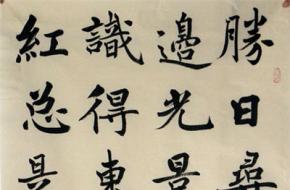 勝日尋
邊光景
識得東
紅总是